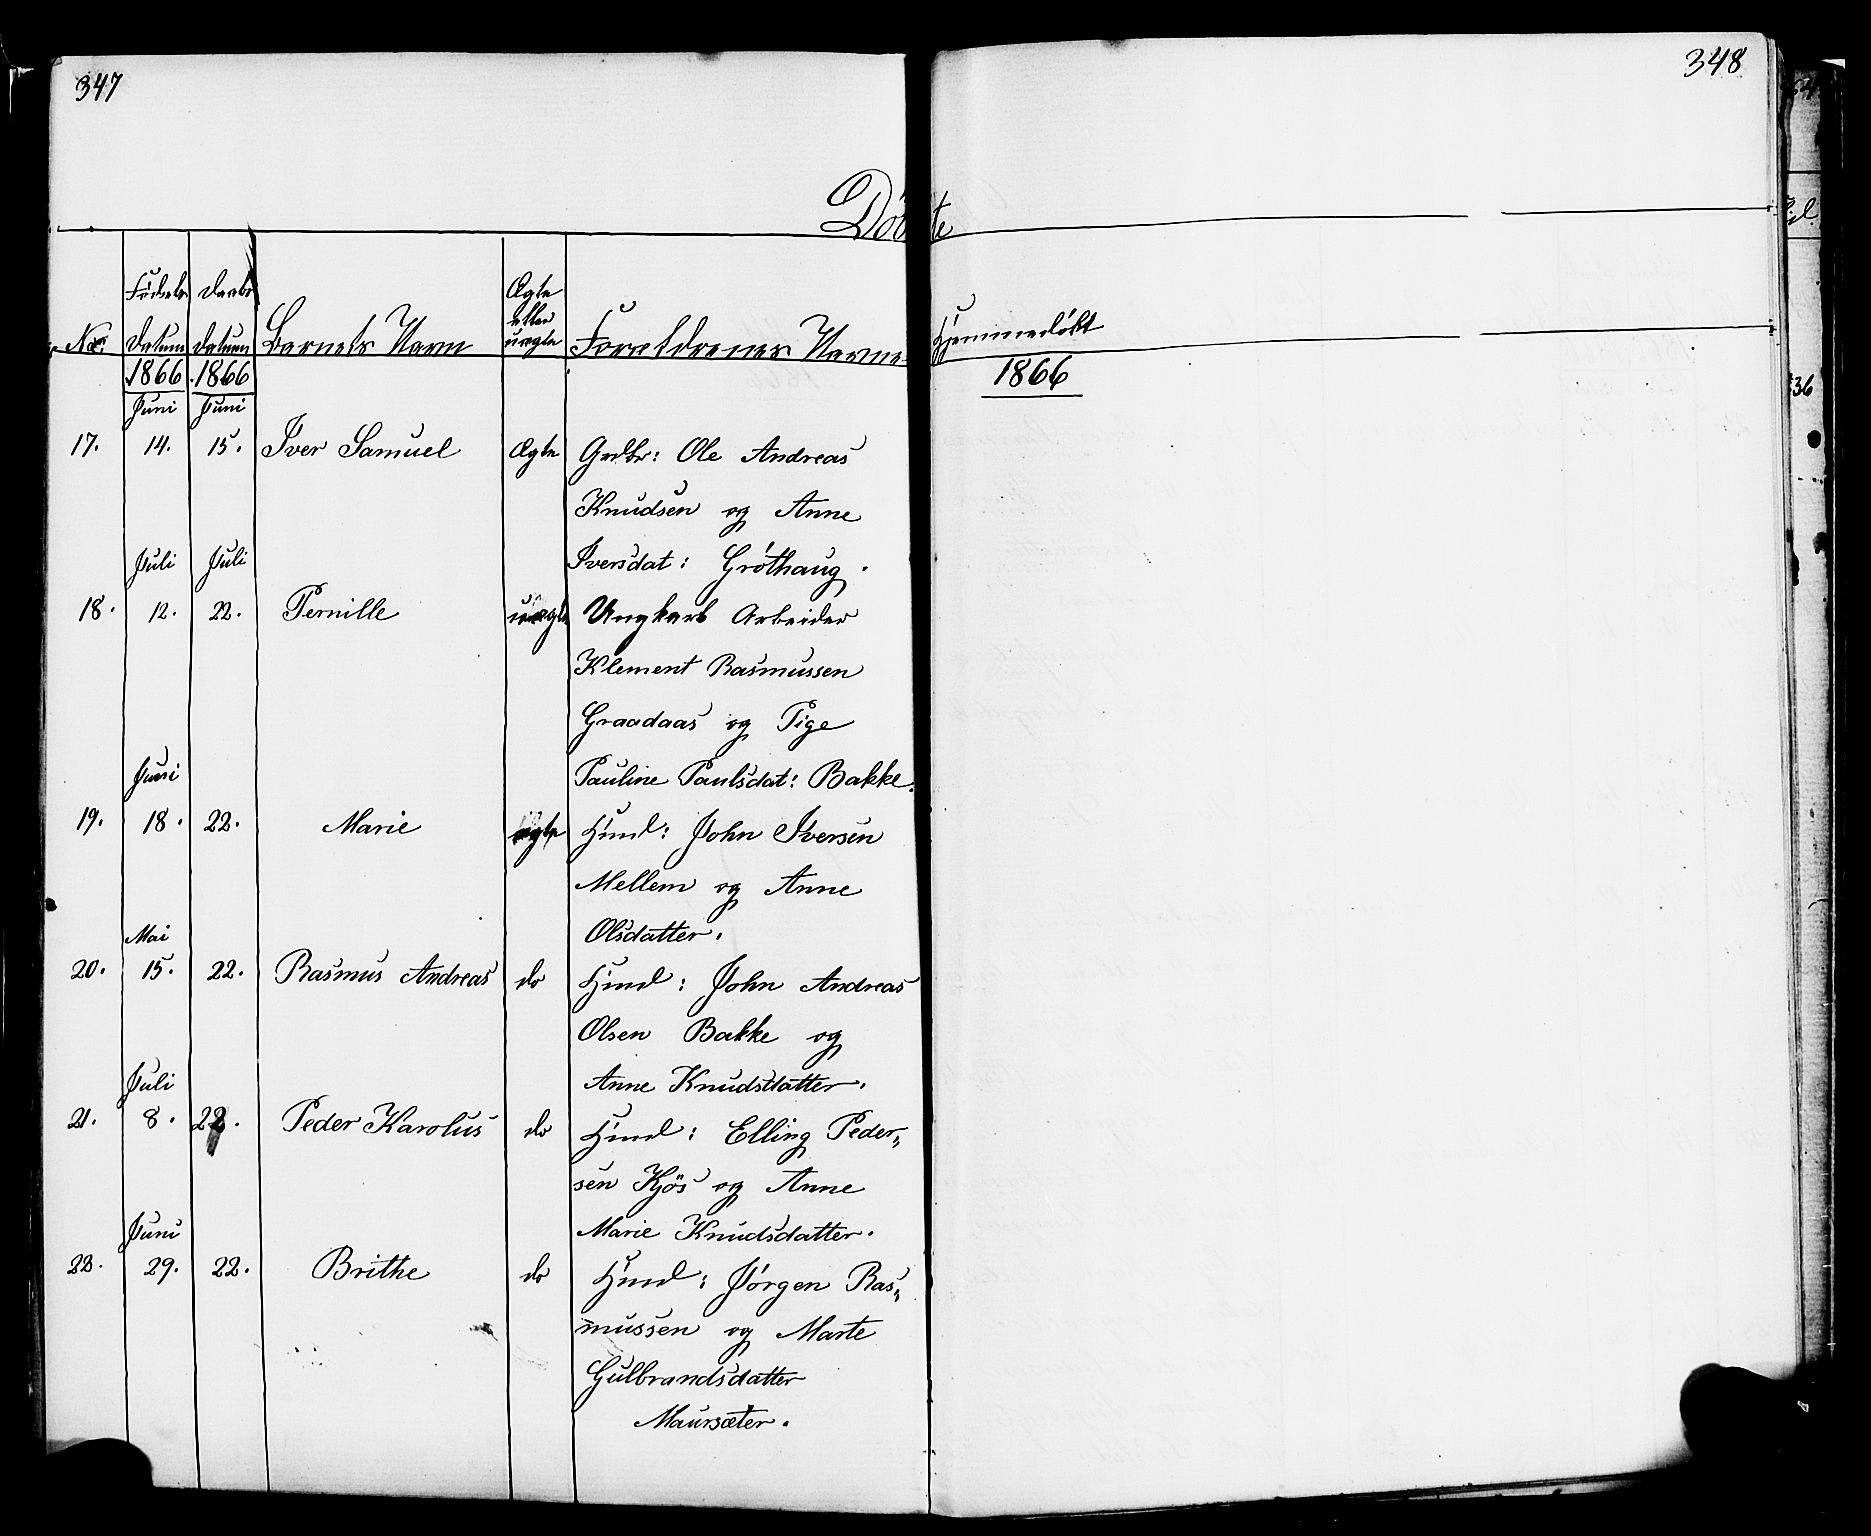 347
348
Døbte
No. Fødsels Datum Daabs Datum Barnets Navn Ægte eller uægte Forældrenes Navne Hjemmedøbt
1866 1866 1866
Juni Juni
17. 14. 15. Iver Samuel Ægte Grdbr: Ole Andreas
Knudsen og Anne
Iversdat: Grøthaug.
Juli Juli
18. 12. 22. Pernille uægte Ungkarl Arbeider
Klement Rasmussen
Graadaas og Pige
Pauline Paulsdat: Bakke.
Juni
19. 18. 22. Marie ægte Huusm: John Iversen
Mellem og Anne
Olsdatter.
Mai
20. 15. 22. Rasmus Andreas do Huusm: John Andreas
Olsen Bakke og
Anne Knudsdatter.
Juli
21. 8. 22. Peder Karolus do Huusm: Elling Peder-
sen Kjös og Anne
Marie Knudsdatter.
Juni
22. 29. 22. Brithe do Huusm: Jørgen Ras-
mussen og Marte
Gulbrandsdatter
Maursæter.
36